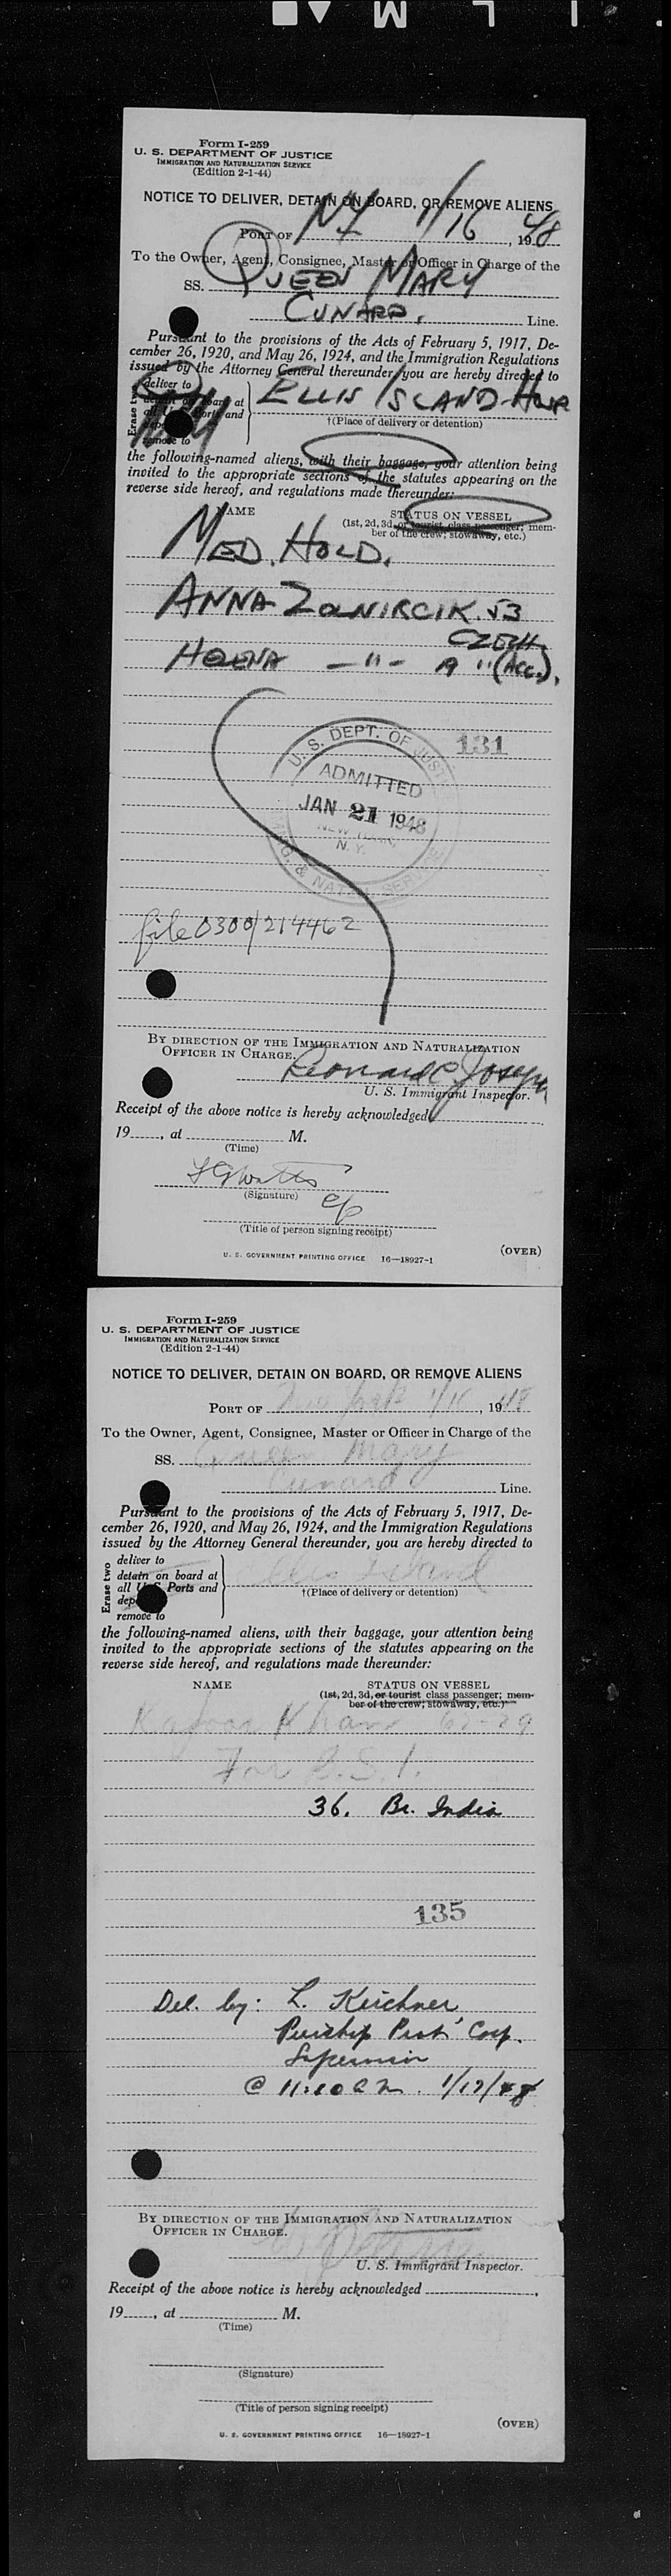 Form I-259
U. S. DEPARTMENT OF JUSTICE
IMMIGRATION AND NATURALIZATION SERVICE
(Edition 2-1-44)
NOTICE TO DELIVER, DETAIN ON BOARD, OR REMOVE ALIENS
PORT OF NY 1/16, 1948
To the Owner, Agent, Consignee, Master or Officer in Charge of the
SS. QUEEN MARY
CUNARD. Line.
Pursuant to the provisions of the Acts of February 5, 1917, De-
cember 26, 1920, and May 26, 1924, and the Immigration Regulations
issued by the Attorney General thereunder, you are hereby directed to
Erase two
deliver to
detain on board at
all U. S. Ports and
remove to
ELLIS ISLAND
†(Place of delivery or detention)
the following-named aliens, with their baggage, your attention being
invited to the appropriate sections of the statutes appearing on the
reverse side hereof, and regulations made thereunder:
NAME STATUS ON VESSEL
(1st, 2d, 3d, or tourist class passenger; mem-
ber of the crew; stowaway, etc.)
MED. HOLD.
ANNA 53
CZECH
HELENA — " — 19 " (ACC.).
131
U. S. DEPT. OF JUSTICE
ADMITTED
JAN 21 1948
NEW YORK
N. Y.
& NATZ. SERV
file 0300/214462
BY DIRECTION OF THE IMMIGRATION AND NATURALIZATION
OFFICER IN CHARGE.
Leonard C Joseph
U. S. Immigrant Inspector.
Receipt of the above notice is hereby acknowledged
19, at M.
(Time)
(Signature)
(Title of person signing receipt)
U. S. GOVERNMENT PRINTING OFFICE 16—18927-1
(OVER)
Form I-259
U. S. DEPARTMENT OF JUSTICE
IMMIGRATION AND NATURALIZATION SERVICE
(Edition 2-1-44)
NOTICE TO DELIVER, DETAIN ON BOARD, OR REMOVE ALIENS
PORT OF New York 1/16, 1948
To the Owner, Agent, Consignee, Master or Officer in Charge of the
SS. Queen Mary
Cunard Line.
Pursuant to the provisions of the Acts of February 5, 1917, De-
cember 26, 1920, and May 26, 1924, and the Immigration Regulations
issued by the Attorney General thereunder, you are hereby directed to
Erase two
deliver to
detain on board at
all U. S. Ports and
remove to
Ellis Island
†(Place of delivery or detention)
the following-named aliens, with their baggage, your attention being
invited to the appropriate sections of the statutes appearing on the
reverse side hereof, and regulations made thereunder:
NAME STATUS ON VESSEL
(1st, 2d, 3d, or tourist class passenger; mem-
ber of the crew; stowaway, etc.)
Khan
For B.S.I.
36. Br. India
135
Del. by: L. Kirchner
Corp.
Supervisor
BY DIRECTION OF THE IMMIGRATION AND NATURALIZATION
OFFICER IN CHARGE.
U. S. Immigrant Inspector.
Receipt of the above notice is hereby acknowledged
19, at M.
(Time)
(Signature)
(Title of person signing receipt)
U. S. GOVERNMENT PRINTING OFFICE 16—18927-1
(OVER)